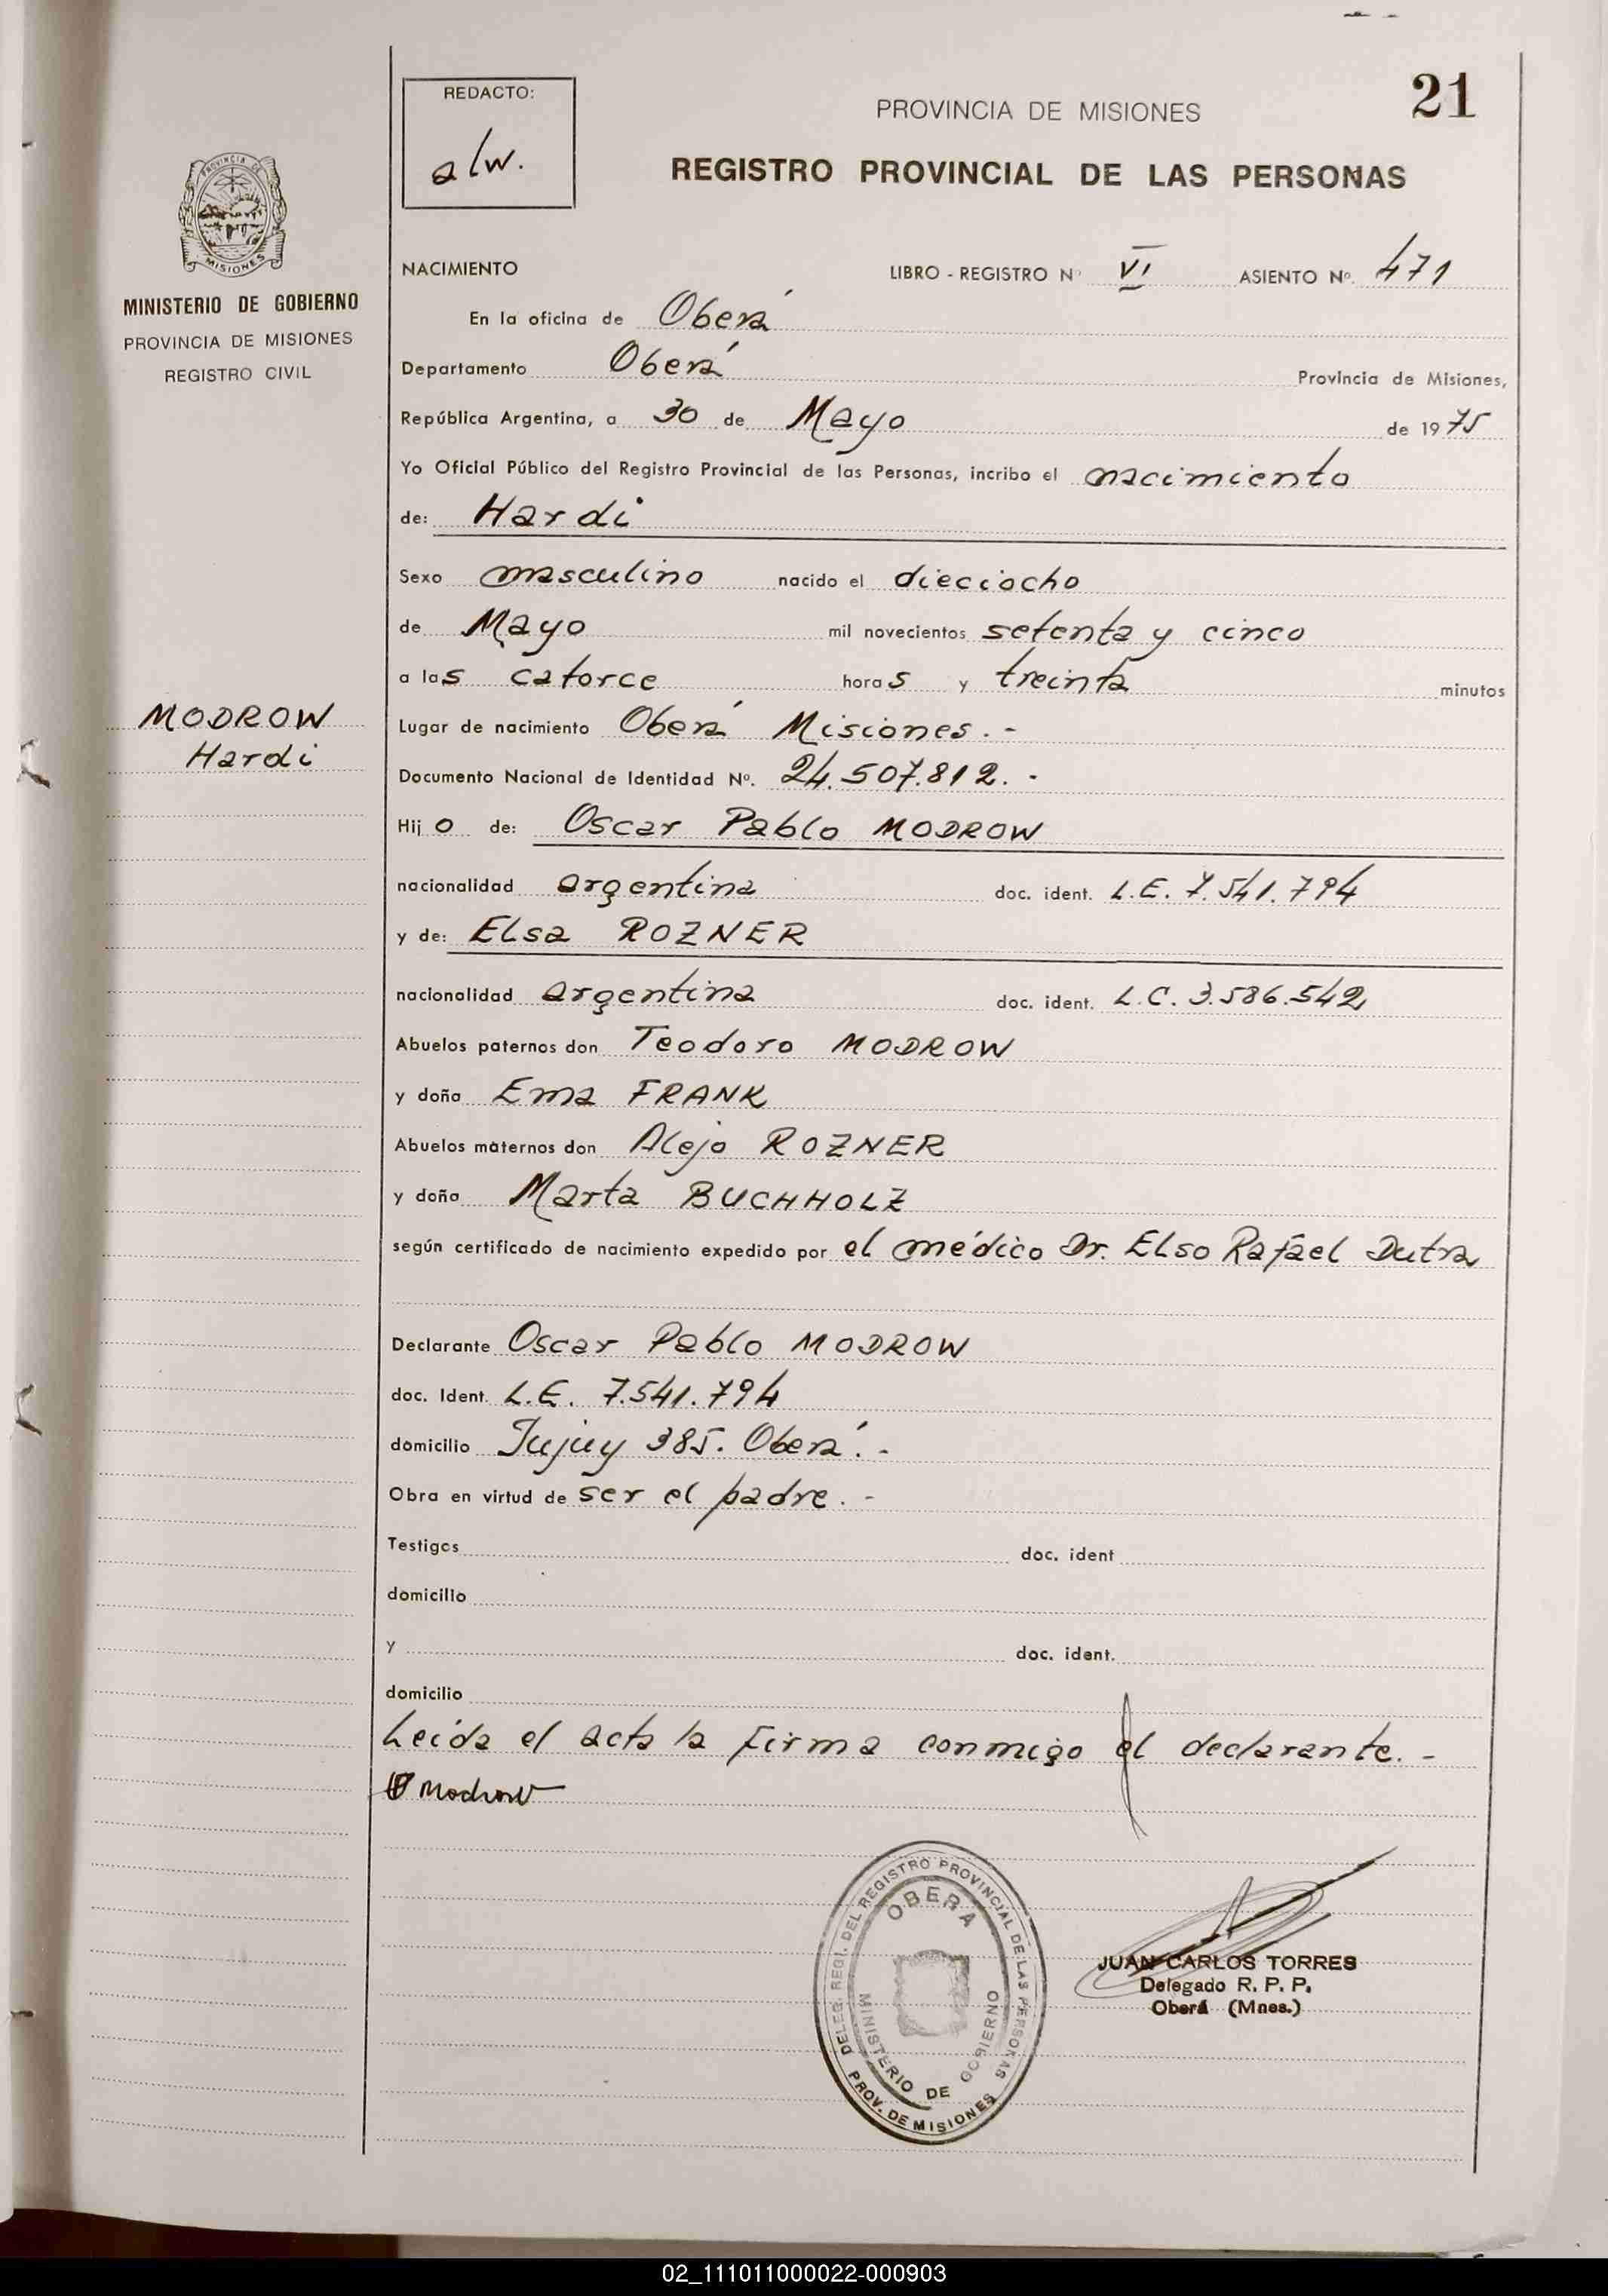 21
REDACTO:
a/w.
PROVINCIA DE MISIONES
REGISTRO PROVINCIAL DE LAS PERSONAS
PROVINCIA DE
MISIONES
MINISTERIO DE GOBIERNO
PROVINCIA DE MISIONES
REGISTRO CIVIL
MODROW
Hardi
NACIMIENTO LIBRO - REGISTRO Nº VI ASIENTO Nº. 471
En la oficina de Oberá
Departamento Oberá Provincia de Misiones,
República Argentina, a 30 de Mayo de 1975
Yo Oficial Público del Registro Provincial de las Personas, incribo el nacimiento
de: Hardi
Sexo masculino nacido el dieciocho
de Mayo mil novecientos setenta y cinco
a las catorce horas y treinta minutos
Lugar de nacimiento Oberá Misiones. -
Documento Nacional de Identidad Nº. 24.507.812. -
Hijo de: Oscar Pablo MODROW
nacionalidad argentina doc. ident. L.E. 7.541.794
y de: Elsa ROZNER
nacionalidad argentina doc. ident. L.C. 3.586.542
Abuelos paternos don Teodoro MODROW
y doña Ema FRANK
Abuelos maternos don Alejo ROZNER
y doña Marta BUCHHOLZ
según certificado de nacimiento expedido por el médico Dr. Elso Rafael Dutra
Declarante Oscar Pablo MODROW
doc. Ident. L.E. 7.541.794
domicilio Jujuy 385. Oberá. -
Obra en virtud de ser el padre. -
Testigos doc. ident
domicilio
y doc. ident.
domicilio
Leída el acta la firma conmigo el declarante. -
Modrow
DELEG. REGI. DEL REGISTRO PROVINCIAL DE LAS PERSONAS
OBERA
MINISTERIO DE GOBIERNO
PROV. DE MISIONES
JUAN CARLOS TORRES
Delegado R. P. P.
Oberá (Mnes.)
02_111011000022-000903